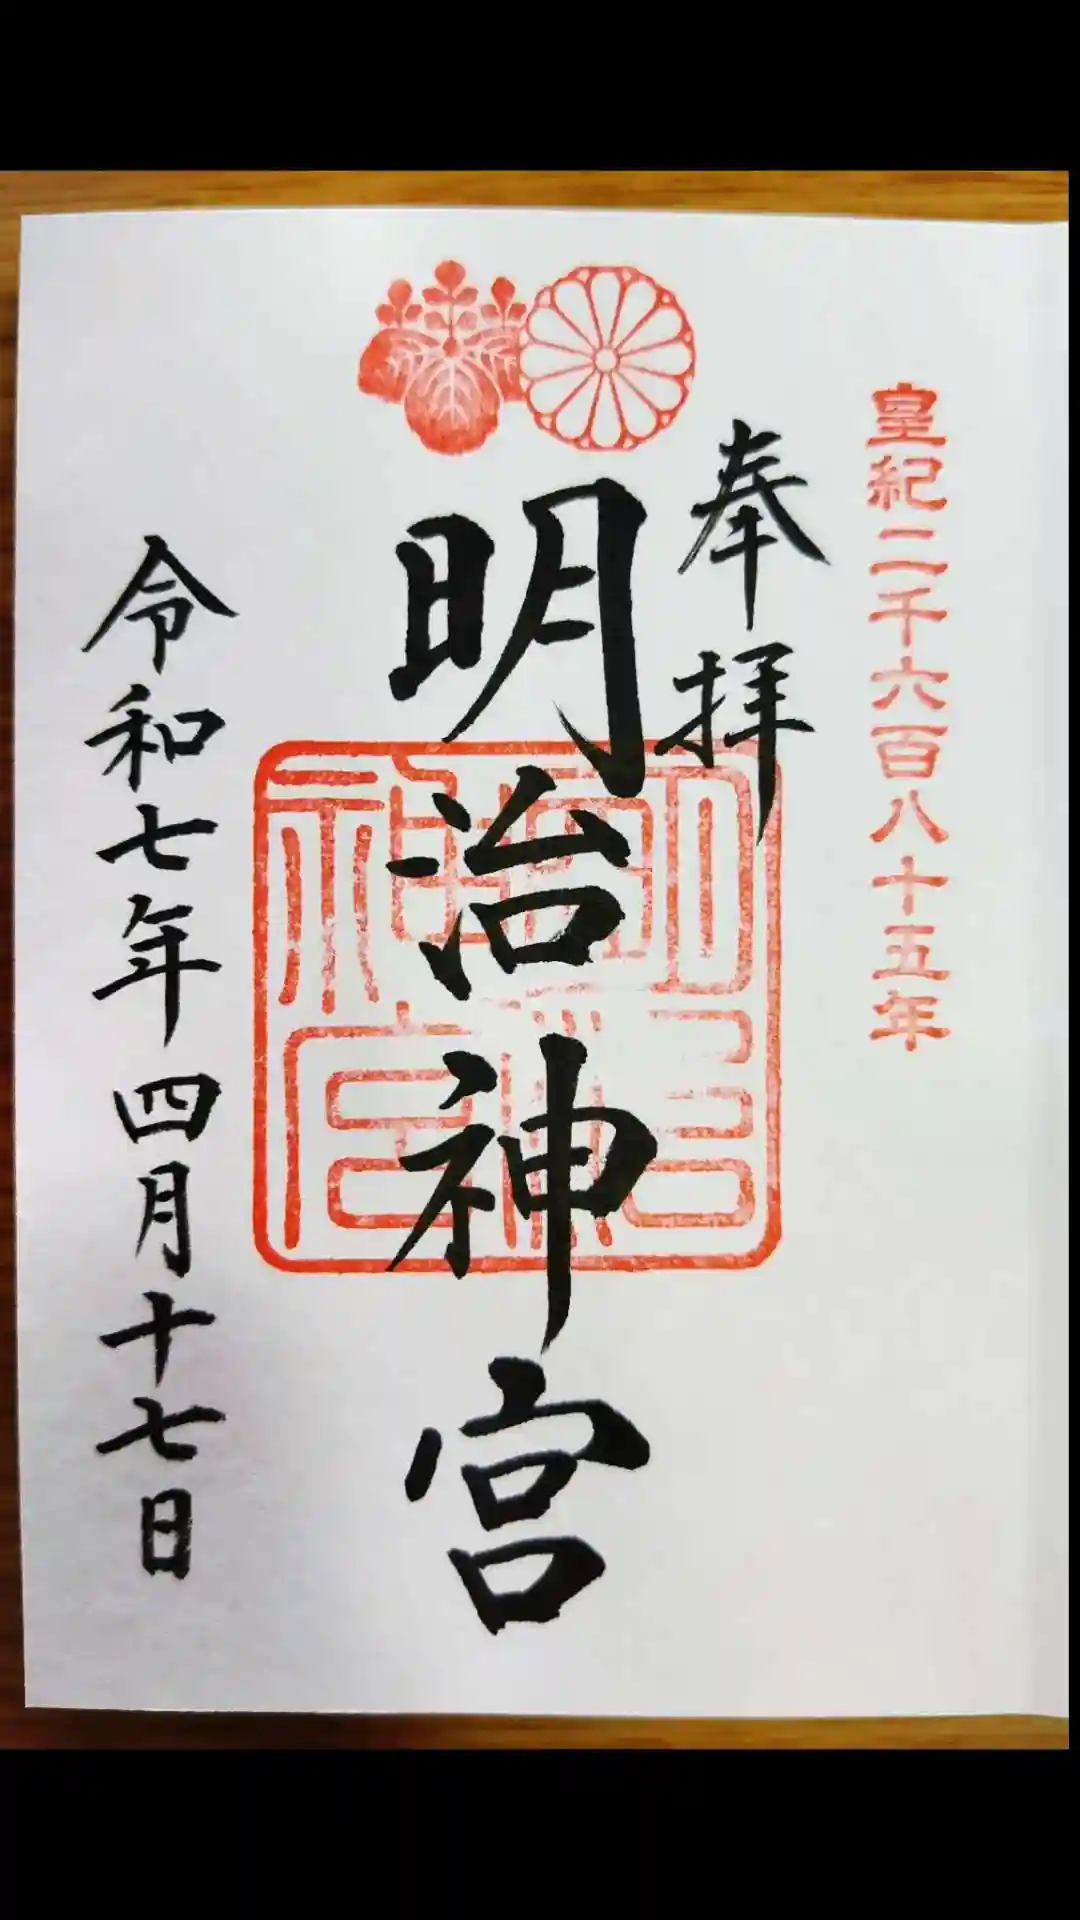 皇紀二千六百八十五年
奉拝
明治神宮
令和七年四月十七日
明治神宮